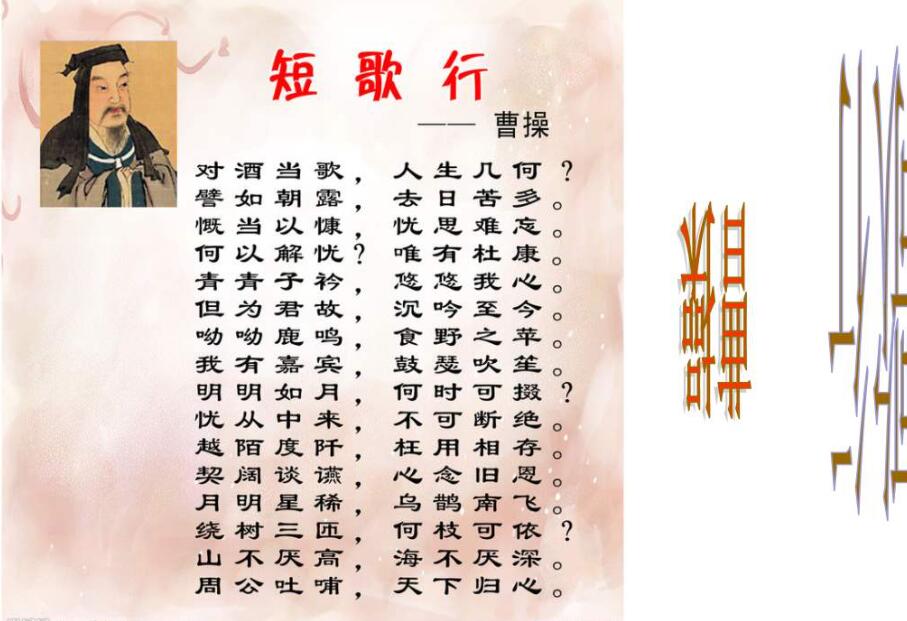 短歌行
—— 曹操
对酒当歌，人生几何？
譬如朝露，去日苦多。
慨当以慷，忧思难忘。
何以解忧？唯有杜康。
青青子衿，悠悠我心。
但为君故，沉吟至今。
呦呦鹿鸣，食野之苹。
我有嘉宾，鼓瑟吹笙。
明明如月，何时可掇？
忧从中来，不可断绝。
越陌度阡，枉用相存。
契阔谈䜩，心念旧恩。
月明星稀，乌鹊南飞。
绕树三匝，何枝可依？
山不厌高，海不厌深。
周公吐哺，天下归心。